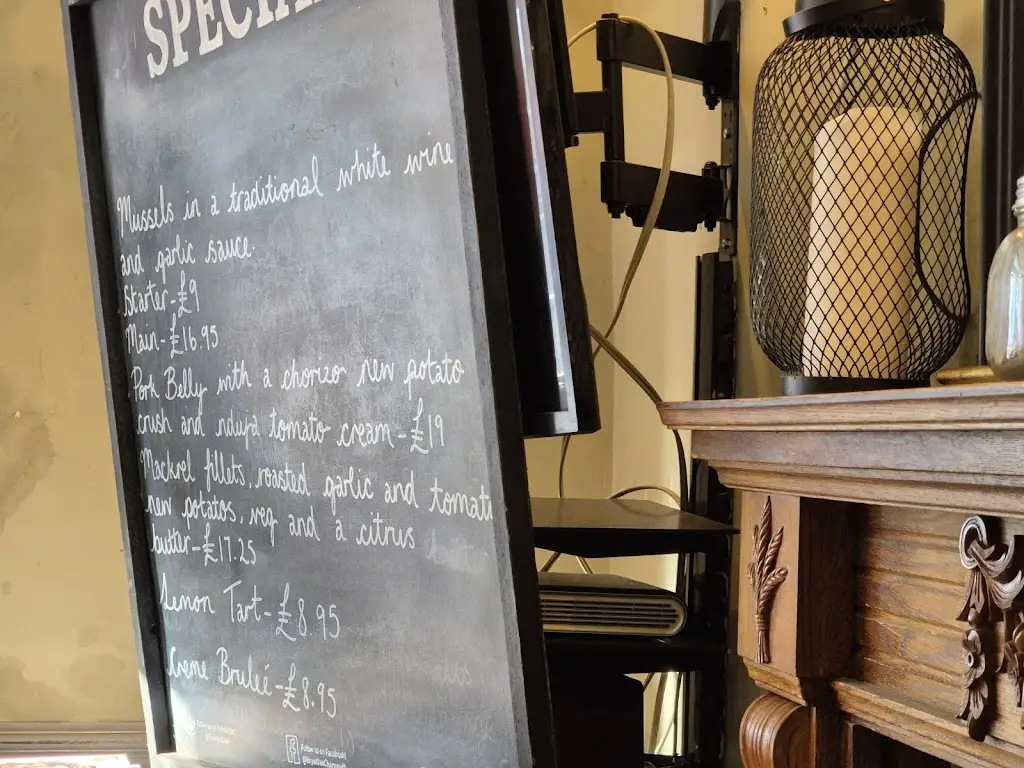 SPECIAL
Mussels in a traditional white wine
and garlic sauce.
Starter-£9
Main-£16.95
Pork Belly with a chorizo new potato
crush and nduja tomato cream-£19
Mackrel fillets, roasted garlic and tomato
new potatos, veg and a citrus
butter-£17.25
Lemon Tart-£8.95
Creme Brulée-£8.95
Follow us on Facebook